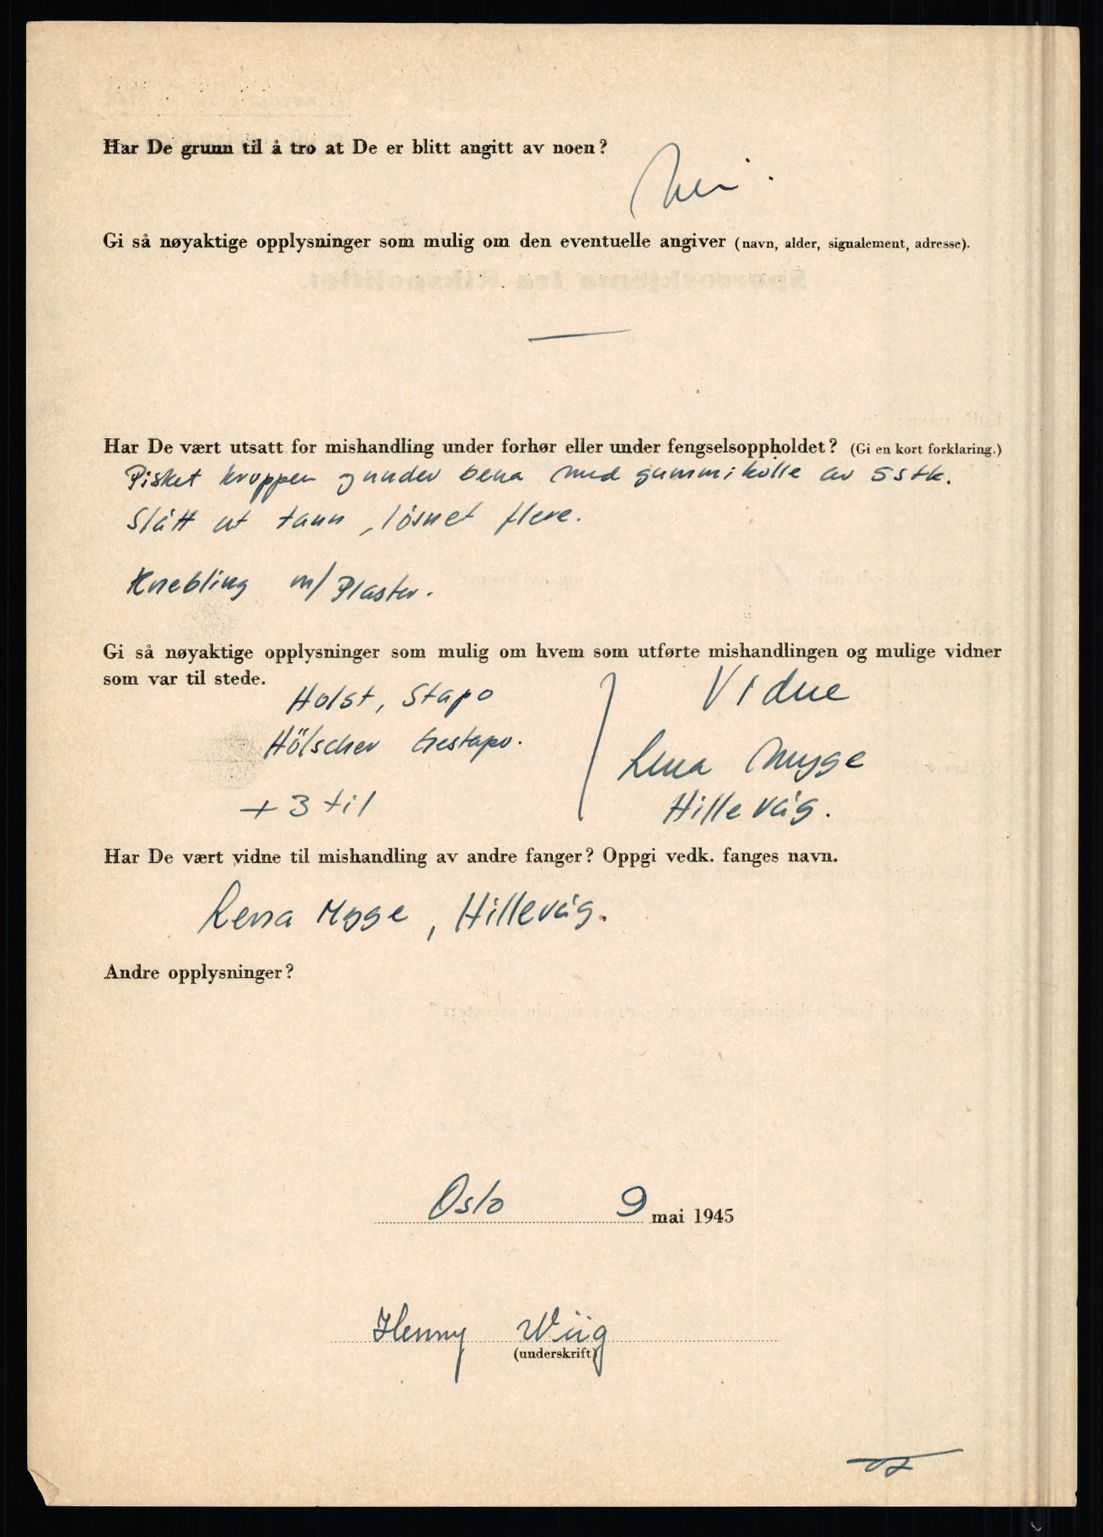 Har De grunn til å tro at De er blitt angitt av noen?
Nei.
Gi så nøyaktige opplysninger som mulig om den eventuelle angiver (navn, alder, signalement, adresse).
—
Har De vært utsatt for mishandling under forhør eller under fengselsoppholdet? (Gi en kort forklaring.)
Pisket kroppen og under bena med gummikølle av 5 stk.
Slått ut tann, løsnet flere.
Knebling m/ Plaster.
Gi så nøyaktige opplysninger som mulig om hvem som utførte mishandlingen og mulige vidner
som var til stede.
Holst, Stapo
Hölscher Gestapo.
+ 3 til
Vidne
Lena Mygge
Hillevåg.
Har De vært vidne til mishandling av andre fanger? Oppgi vedk. fanges navn.
Lena Mygge, Hillevåg.
Andre opplysninger?
Oslo 9 mai 1945
Henny Wiig
(underskrift)